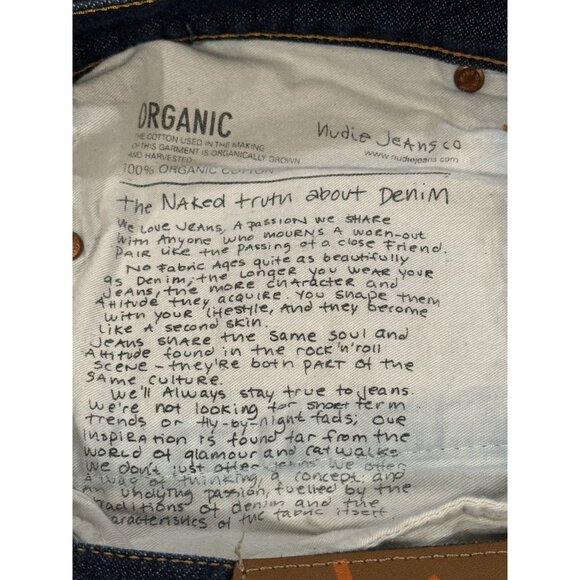 ORGANIC
THE COTTON USED IN THE MAKING
OF THIS GARMENT IS ORGANICALLY GROWN
AND HARVESTED
100% ORGANIC COTTON
nudie Jeans co
www.nudiejeans.com
the NAKed truth about DENIM
We Love JEANS, A passion we SHARE
with Anyone who mourns A worn-out
PAIR like the passing of a close Friend.
No Fabric Ages quite as beautifully
as Denim; the longer you wear your
Jeans, the more character and
Attitude they acquire. You shape them
with your lifestyle, And they become
like A second skin.
Jeans share the same soul and
Attitude found in the rock'n'roll
scene – they're both part of the
same culture.
We'll Always stay true to jeans.
We're not looking for short term
trends or fly-by-night fads; our
inspiration is found far from the
world of glamour and catwalks
We don't just offer jeans we offer
A way of thinking, a concept and
an undying passion, fuelled by the
traditions of denim and the
characteristics of the fabric itself